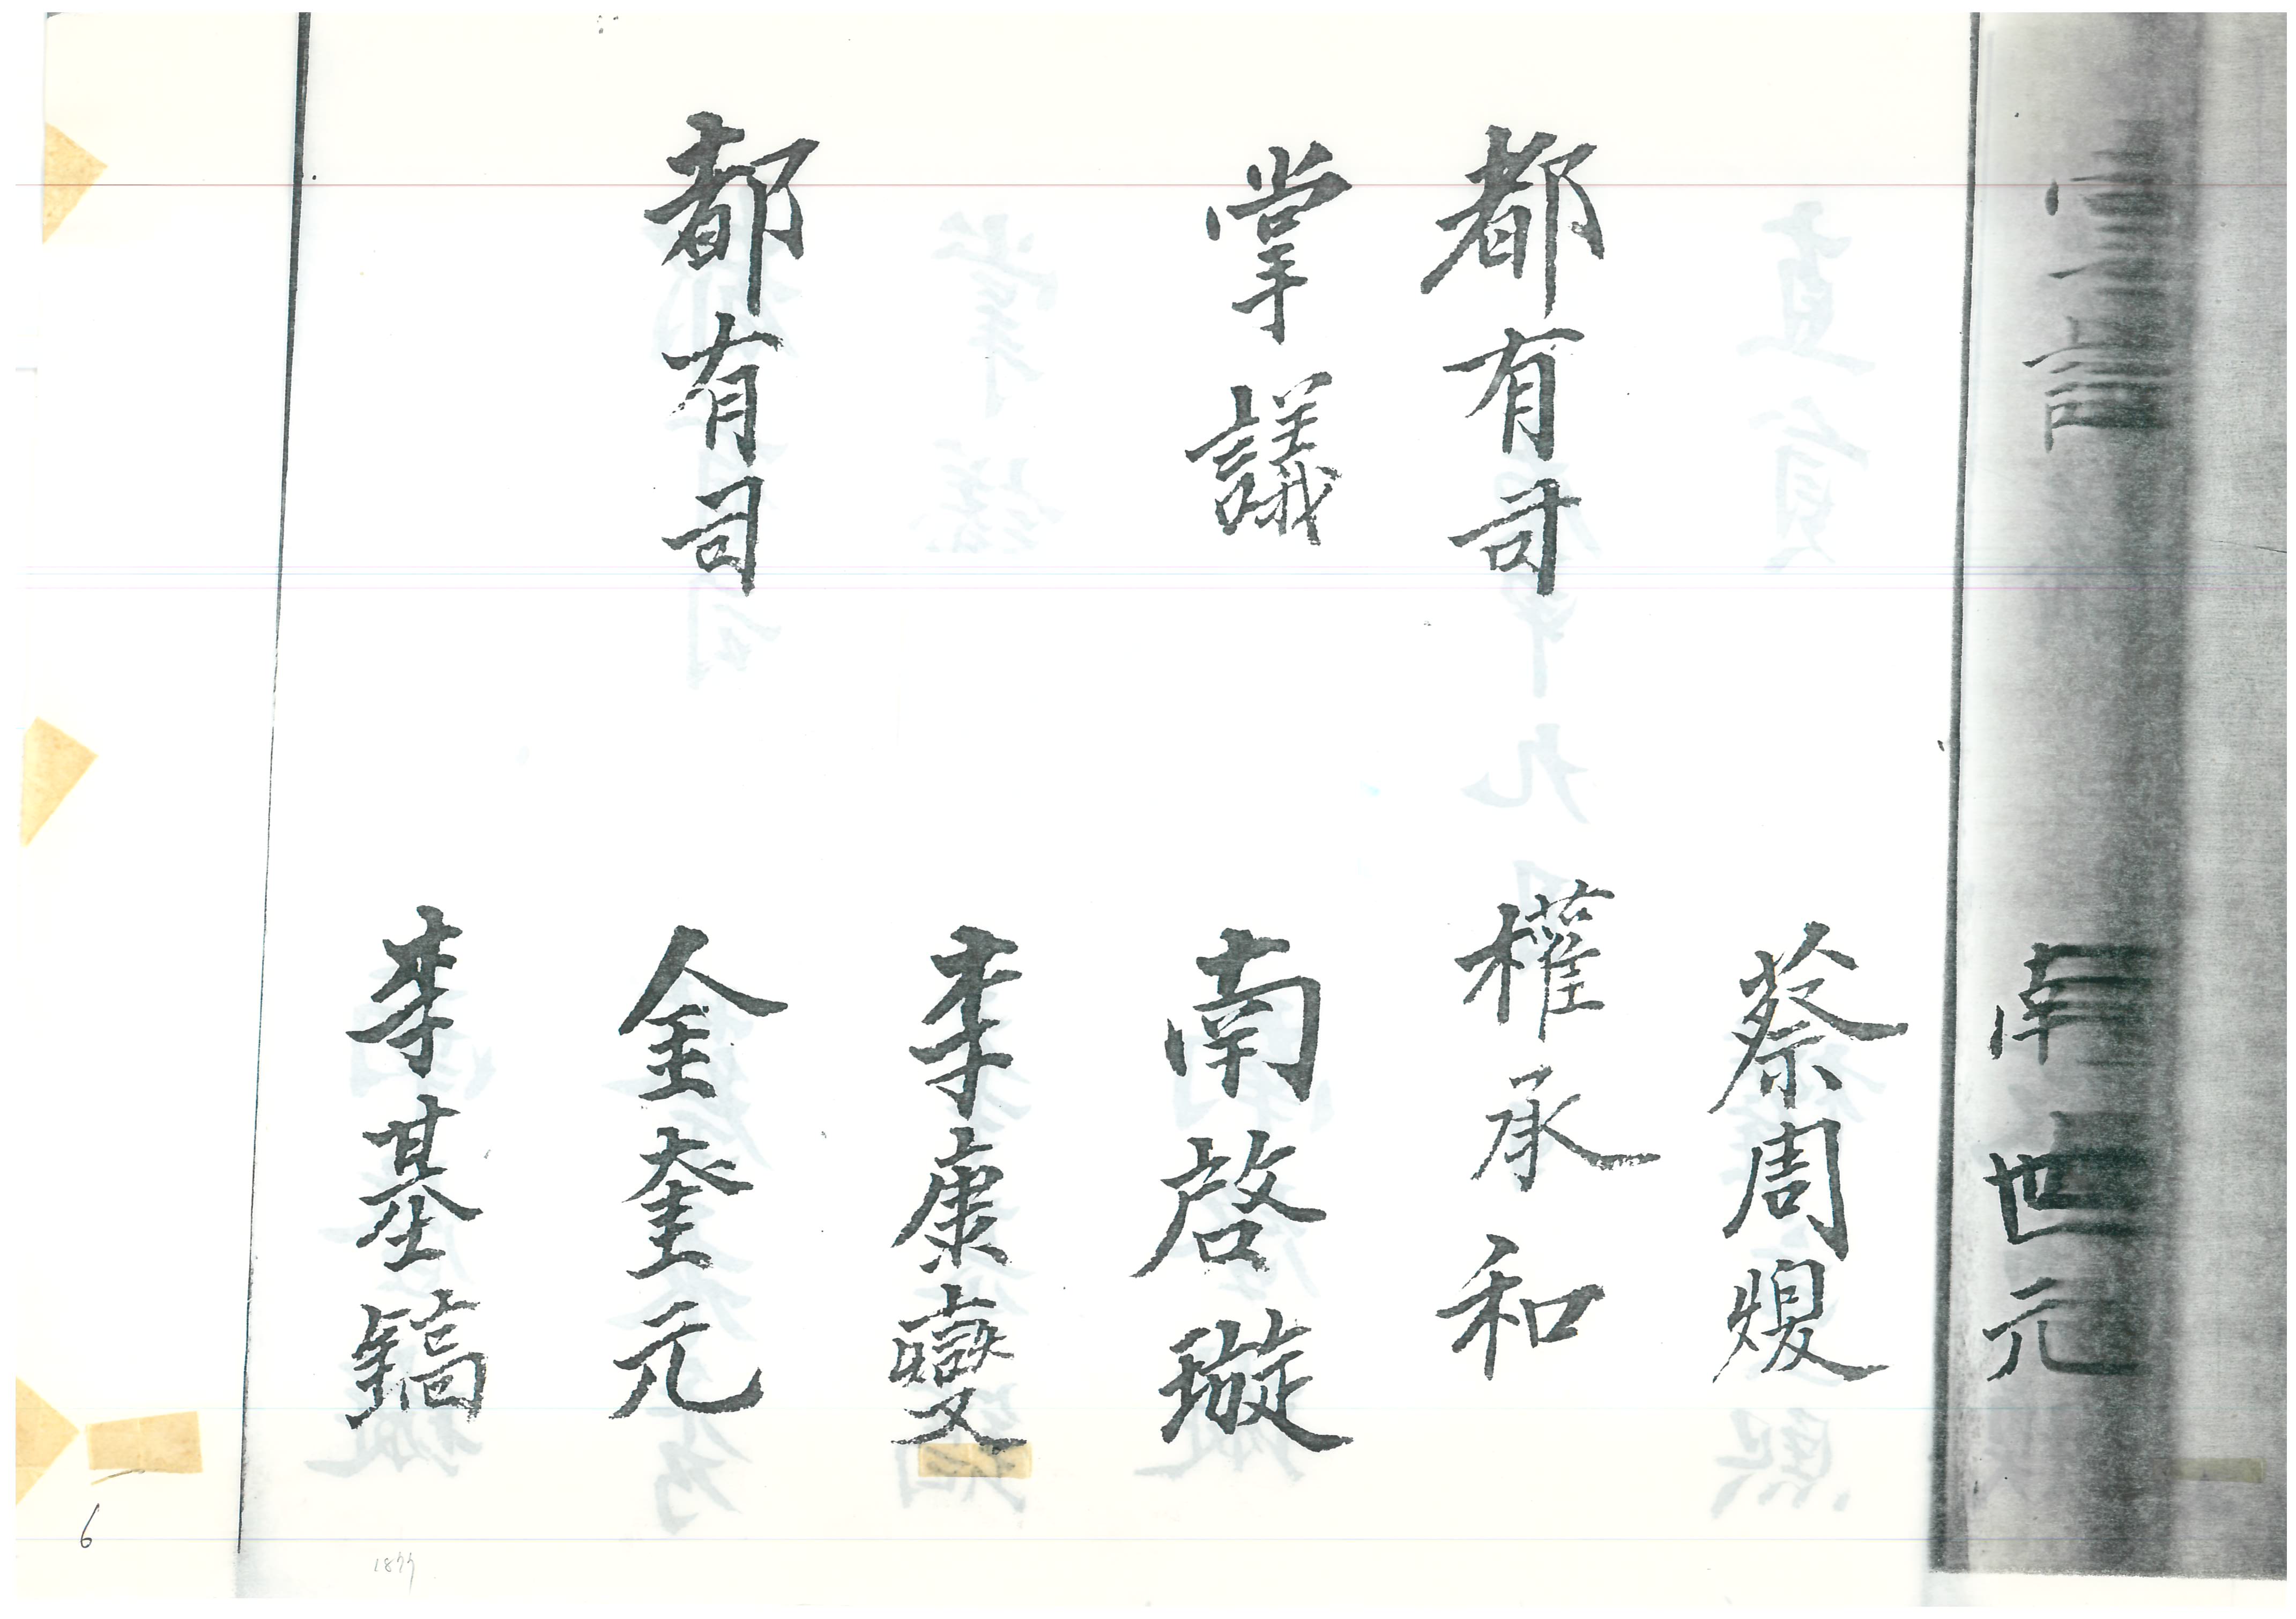 南世元
蔡周煚
都有司 權承和
掌議 南啓璇
李康燮
都有司 金奎元
李基鎬
6
1877